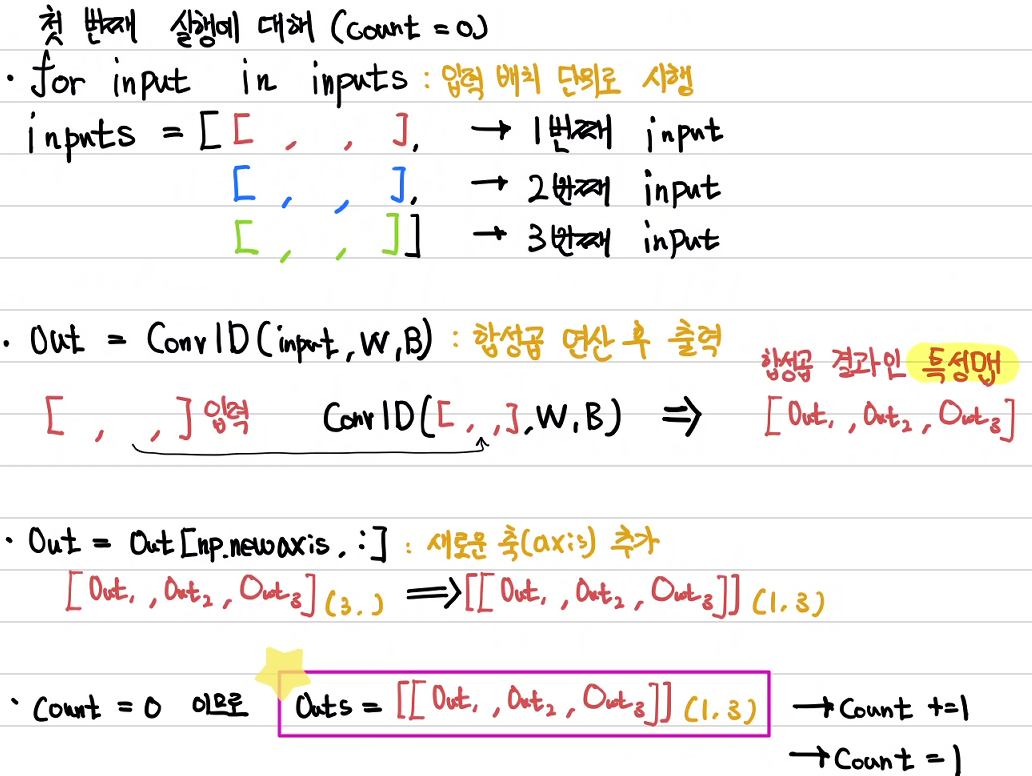 첫 번째 실행에 대해 (count = 0)
· for input in inputs : 입력 배치 단위로 시행
inputs = [[ , , ], → 1번째 input
[ , , ], → 2번째 input
[ , , ]] → 3번째 input
· Out = Conv1D(input, W, B) : 합성곱 연산 후 출력
합성곱 결과인 특성맵
[ , , ] 입력 Conv1D([ , , ], W, B) ⇒ [Out₁, Out₂, Out₃]
· Out = Out[np.newaxis, :] : 새로운 축(axis) 추가
[Out₁, Out₂, Out₃] (3,) ⇒ [[Out₁, Out₂, Out₃]] (1,3)
· Count = 0 이므로 Outs = [[Out₁, Out₂, Out₃]] (1,3) → Count +=1
→ Count = 1